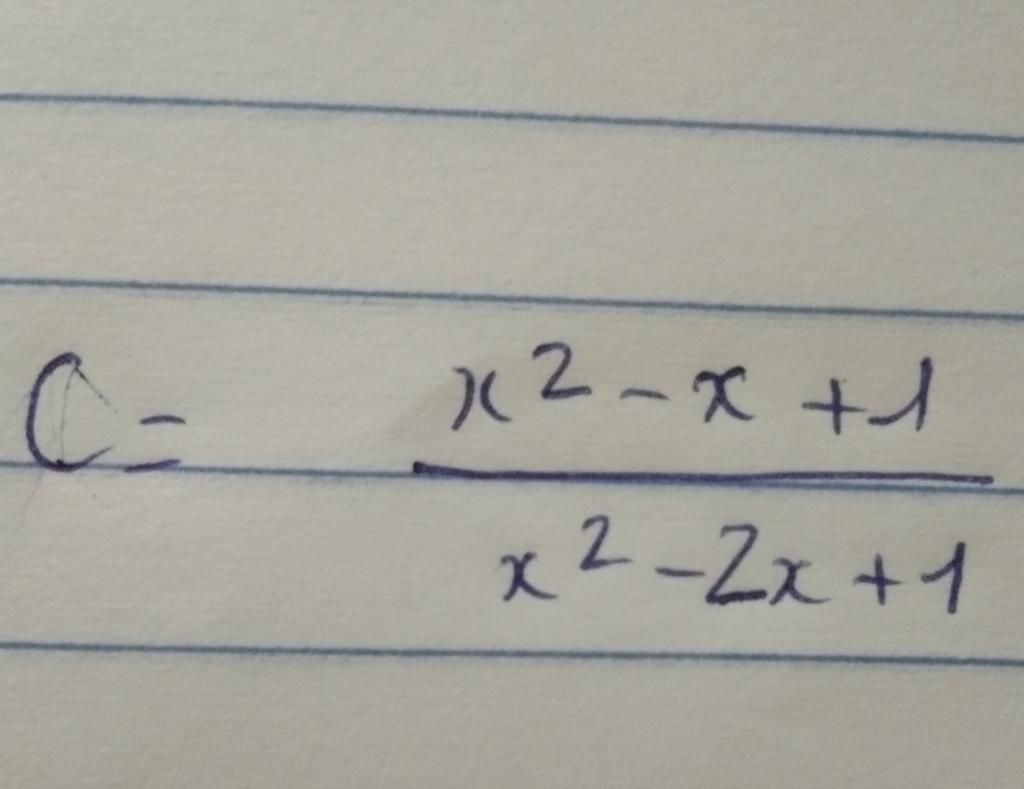 C = x² - x + 1
x² - 2x + 1